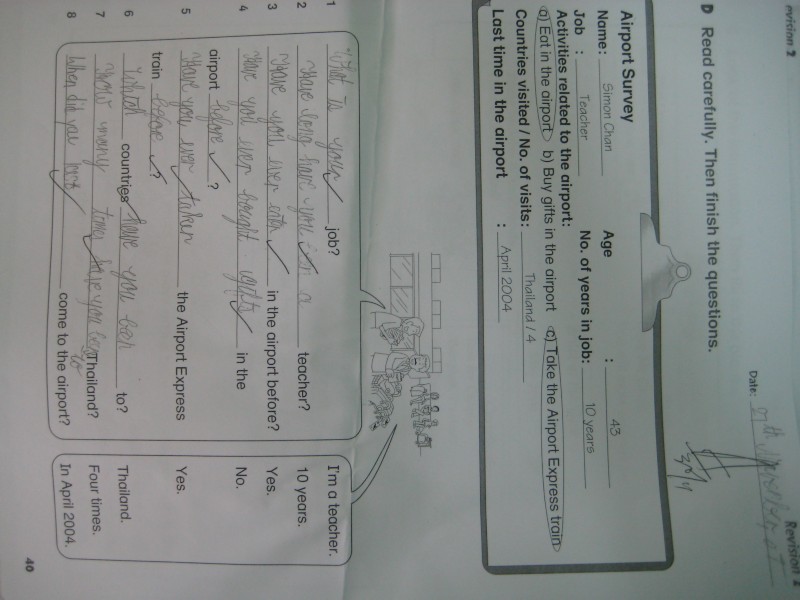 Revision 2
Revision 1
Date: 27th
D Read carefully. Then finish the questions.
Airport Survey
Name: Simon Chan Age : 43
Job : Teacher No. of years in job: 10 years
Activities related to the airport:
a) Eat in the airport b) Buy gifts in the airport c) Take the Airport Express train
Countries visited / No. of visits: Thailand / 4
Last time in the airport : April 2004
1 What is your job? I'm a teacher.
2 How long have you a teacher? 10 years.
3 Have you ever eaten in the airport before? Yes.
4 Have you ever bought gifts in the No.
airport before?
5 Have you ever taken the Airport Express Yes.
train before?
6 Which countries have you been to? Thailand.
7 How many times have you been to Thailand? Four times.
8 When did you last come to the airport? In April 2004.
40